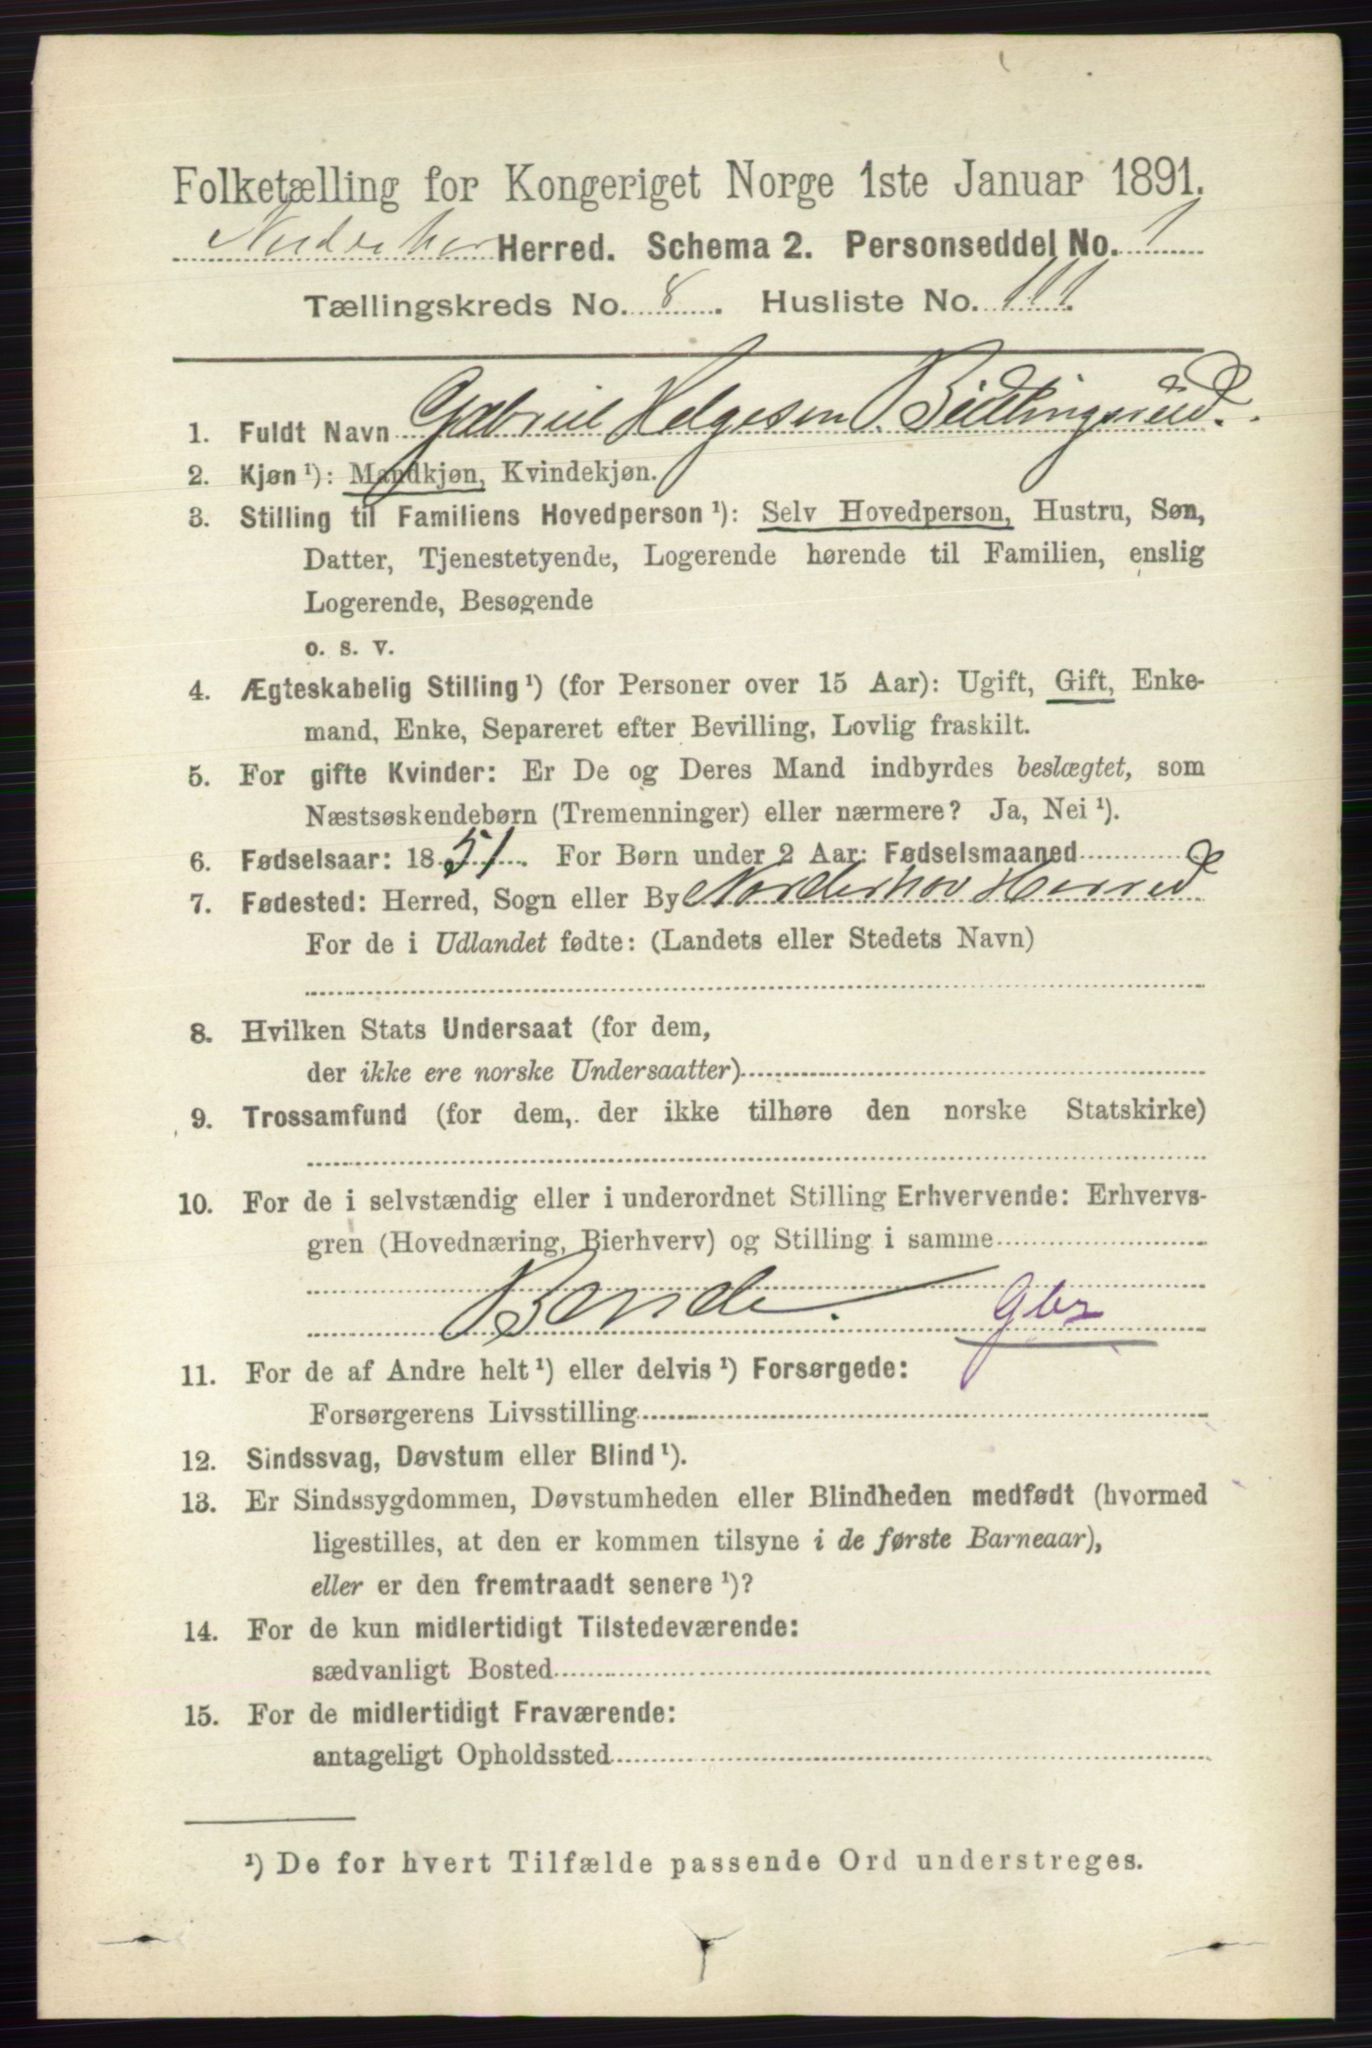 Folketælling for Kongeriget Norge 1ste Januar 1891.
Norderhov Herred. Schema 2. Personseddel No. 1
Tællingskreds No. 8. Husliste No. 111.
1. Fuldt Navn Gabriel Helgesen
2. Kjøn ¹): Mandkjøn, Kvindekjøn.
3. Stilling til Familiens Hovedperson ¹): Selv Hovedperson, Hustru, Søn,
Datter, Tjenestetyende, Logerende hørende til Familien, enslig
Logerende, Besøgende
o. s. v.
4. Ægteskabelig Stilling ¹) (for Personer over 15 Aar): Ugift, Gift, Enke-
mand, Enke, Separeret efter Bevilling, Lovlig fraskilt.
5. For gifte Kvinder: Er De og Deres Mand indbyrdes beslægtet, som
Næstsøskendebørn (Tremenninger) eller nærmere? Ja, Nei ¹).
6. Fødselsaar: 1851. For Børn under 2 Aar: Fødselsmaaned
7. Fødested: Herred, Sogn eller By Norderhov Herred
For de i Udlandet fødte: (Landets eller Stedets Navn)
8. Hvilken Stats Undersaat (for dem,
der ikke ere norske Undersaatter)
9. Trossamfund (for dem, der ikke tilhøre den norske Statskirke)
10. For de i selvstændig eller i underordnet Stilling Erhvervende: Erhvervs-
gren (Hovednæring, Bierhverv) og Stilling i samme
Bonde. Gbr
11. For de af Andre helt ¹) eller delvis ¹) Forsørgede:
Forsørgerens Livsstilling
12. Sindssvag, Døvstum eller Blind ¹).
13. Er Sindssygdommen, Døvstumheden eller Blindheden medfødt (hvormed
ligestilles, at den er kommen tilsyne i de første Barneaar),
eller er den fremtraadt senere ¹)?
14. For de kun midlertidigt Tilstedeværende:
sædvanligt Bosted
15. For de midlertidigt Fraværende:
antageligt Opholdssted
¹) De for hvert Tilfælde passende Ord understreges.